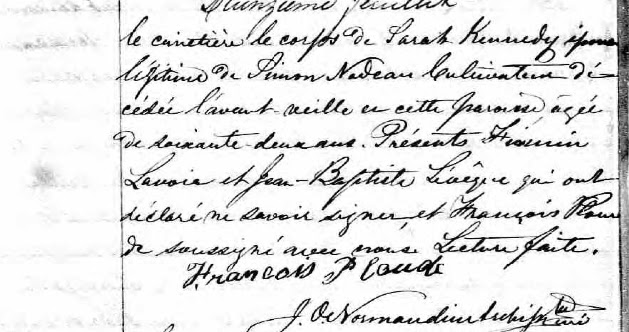 le cimetière le corps de Sarah Kennedy épouse
légitime de Simon Nadeau Cultivateur dé-
cédée l'avant-veille en cette paroisse, agée
de soixante-deux ans. Présents Firmin
Lavoie et Jean-Baptiste Lévêque qui ont
déclaré ne savoir signer, et François Plour
de soussigné avec nous. Lecture faite.
François Plourde
J. O. Normandin